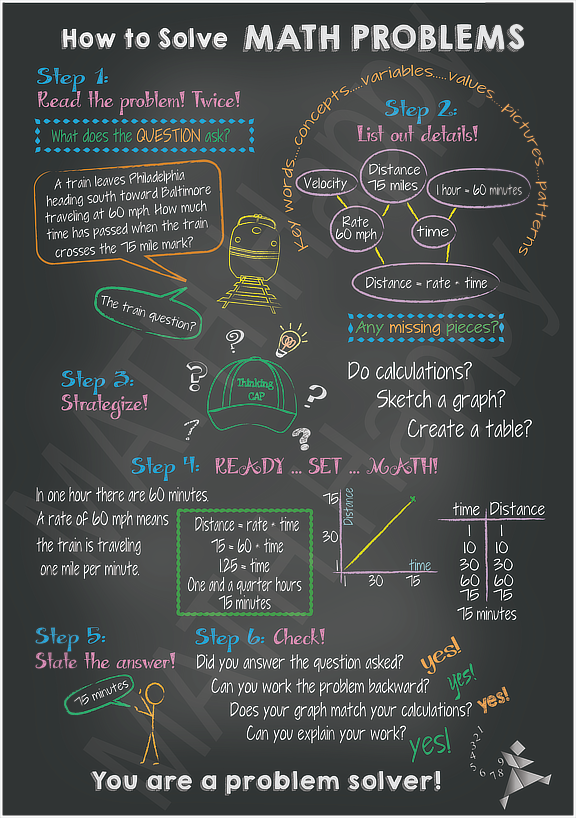 How to Solve MATH PROBLEMS
Step 1:
Read the problem! Twice!
What does the QUESTION ask?
A train leaves Philadelphia
heading south toward Baltimore
traveling at 60 mph. How much
time has passed when the train
crosses the 75 mile mark?
The train question?
Key words....concepts....variables.....values....pictures....patterns
Step 2:
List out details!
Velocity
Distance
75 miles
1 hour = 60 minutes
Rate
60 mph
time
Distance = rate * time
Any missing pieces?
Step 3:
Strategize!
Thinking
CAP
? ? ? ? ?
Do calculations?
Sketch a graph?
Create a table?
Step 4: READY ... SET ... MATH!
In one hour there are 60 minutes.
A rate of 60 mph means
the train is traveling
one mile per minute.
Distance = rate * time
75 = 60 * time
1.25 = time
One and a quarter hours
75 minutes
75
Distance
30
1
time
1 30 75
time Distance
1 1
10 10
30 30
60 60
75 75
75 minutes
Step 5:
State the answer!
75 minutes
Step 6: Check!
Did you answer the question asked? yes!
Can you work the problem backward? yes!
Does your graph match your calculations? yes!
Can you explain your work? yes!
You are a problem solver!
MATH Happy
MATH Happy